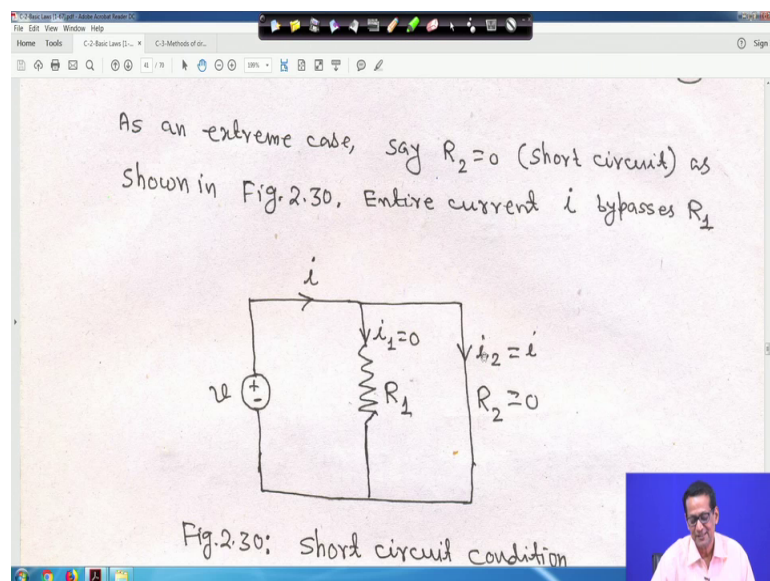 C-2-Basic Laws [1-67].pdf - Adobe Acrobat Reader DC
File Edit View Window Help
Home Tools C-2-Basic Laws [1-... × C-3-Methods of cir... Sign
41 / 70
As an extreme case, say R₂=0 (short circuit) as
shown in Fig. 2.30. Entire current i bypasses R₁
i
i₁=0
i₂ = i
v
+
-
R₁
R₂=0
Fig. 2.30: Short circuit condition